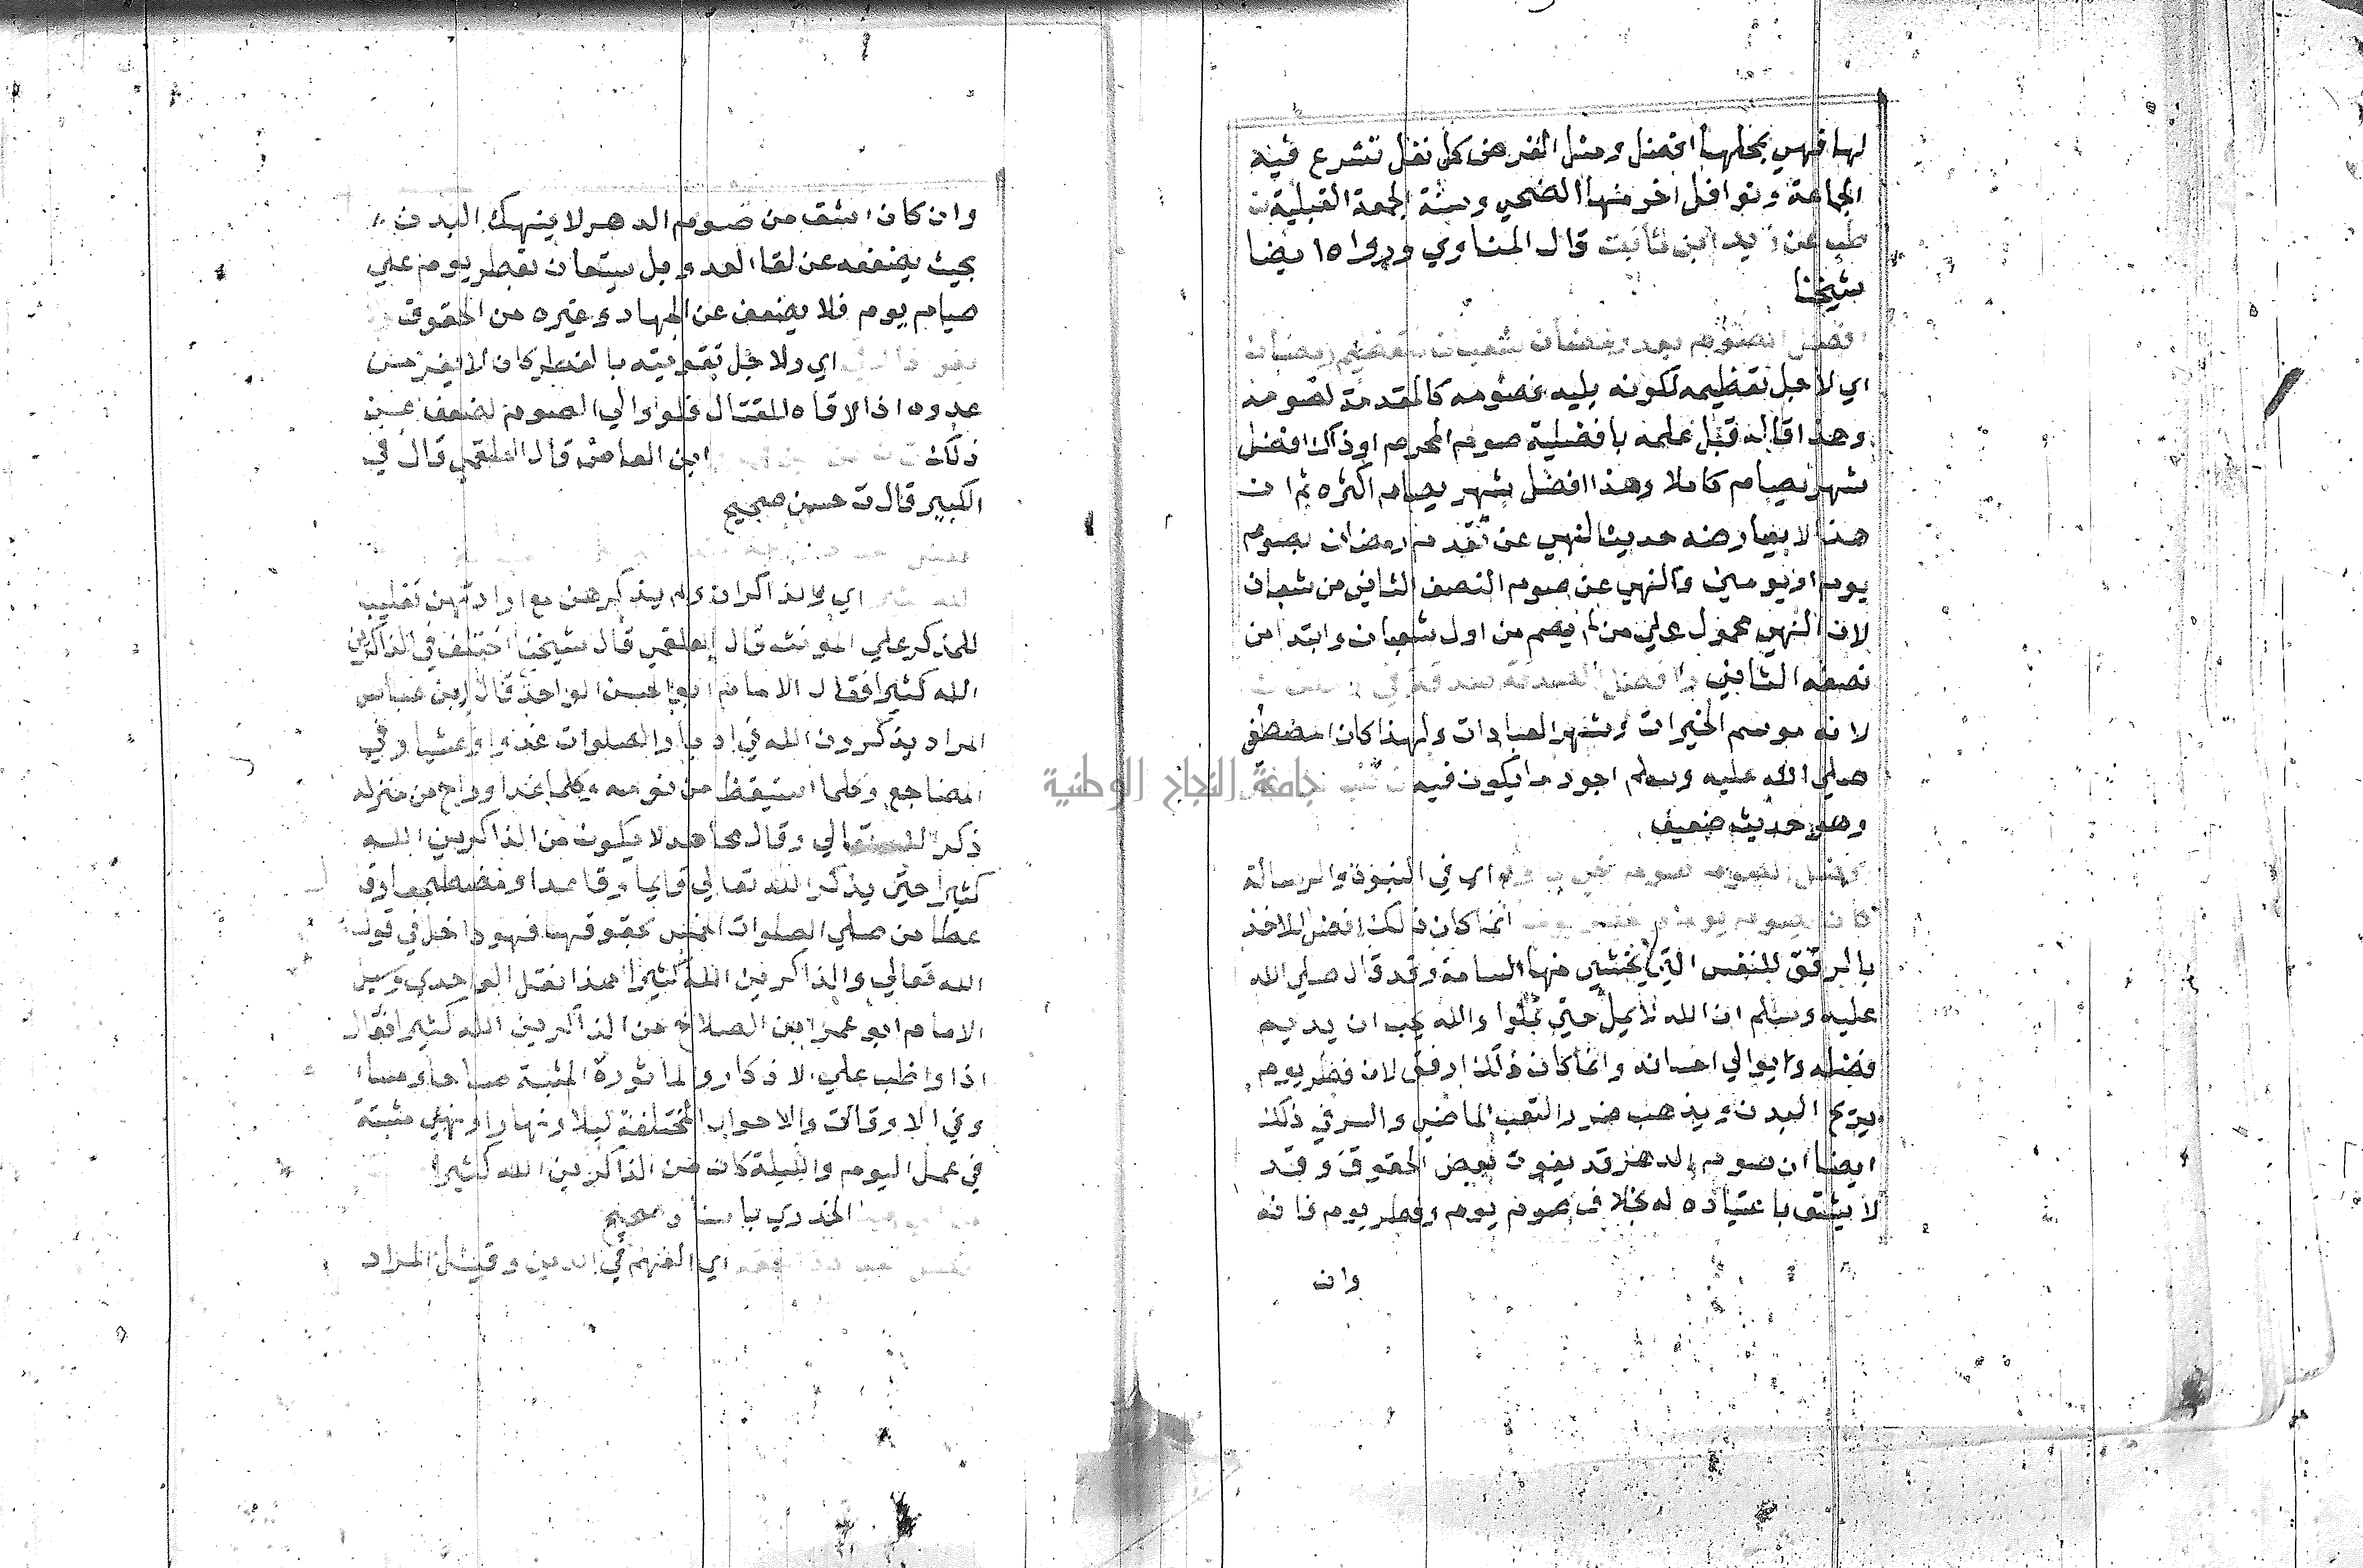 لها فهي بمحلها افضل ومثل الفرض كل نفل تشرع فيه
الجماعة ونوافل اخر منها الضحي وسنة الجمعة القبلية ن
طب عن زيد ابن ثابت قال المناوي ورواه ايضا
شيخنا
افضل الصوم بعد رمضان شعبان لتعظيم رمضان
اي لاجل تعظيمه لكونه يليه فصومه كالمقدمة لصومه
وهذا قاله قبل علمه بافضلية صوم المحرم او ذاك افضل
شهر يصام كاملا وهذا افضل شهر يصام اكثره ثم ان
هذا لا يعارضه حديث النهي عن تقدم رمضان بصوم
يوم او يومين والنهي عن صوم النصف الثاني من شعبان
لان النهي محمول علي من لم يصم من اول شعبان وابتدا من
نصفه الثاني وافضل الصدقة صدقة في
لانه موسم الخيرات وشهر العبادات ولهذا كان المصطفي
صلي الله عليه وسلم اجود ما يكون فيه
جامعة النجاح الوطنية
وهو حديث ضعيف
افضل الصوم صوم اخي داود اي في النبوة والرسالة
كان يصوم يوما ويفطر يوما انما كان ذلك افضل للاخذ
بالرفق للنفس التي يخشي منها السامة وقد قال صلي الله
عليه وسلم ان الله لا يمل حتي تملوا والله يحب ان يديم
فضله ويوالي احسانه وانما كان ذلك ارفق لان فطر يوم
يريح البدن ويذهب ضرر التعب الماضي والسر في ذلك
ايضا ان صوم الدهر قد يفوت بعض الحقوق وقد
لا يشق باعتياده له بخلاف صوم يوم وفطر يوم فانه
وان
وان كان اشق من صوم الدهر لا ينهك البدن
بحيث يضعفه عن لقا العدو بل يستعان بفطر يوم علي
صيام يوم فلا يضعف عن الجهاد وغيره من الحقوق
اي ولاجل تقويته بالفطر كان لا يفر من
عدوه اذا لاقاه للقتال فلو والي الصوم لضعف عن
ذلك ابن العاص قال العلقمي قال في
الكبير قال ت حسن صحيح
اي والذاكران ولم يذكرهن مع ارادتهن تغليبا
للمذكر علي المونث قال العلقمي قال شيخنا اختلف في الذاكرين
الله كثيرا فقال الامام ابو الحسن الواحدي قال ابن عباس
المراد يذكرون الله في ادبار الصلوات غدوا وعشيا وفي
المضاجع وكلما استيقظ من نومه وكلما غدا وراح من منزله
ذكر الله تعالي وقال مجاهد لا يكون من الذاكرين الله
كثيرا حتي يذكر الله تعالي قايما وقاعدا ومضطجعا وقال
عطا من صلي الصلوات الخمس بحقوقها فهو داخل في قول
الله تعالي والذاكرين الله كثيرا هذا نقل الواحدي وسيل
الامام ابو عمرو ابن الصلاح من الذاكرين الله كثيرا فقال
اذا واظب علي الاذكار والماثورة المثبتة صباحا ومساء
وفي الاوقات والاحوال المختلفة ليلا ونهارا وهي مثبتة
في عمل اليوم والليلة كان من الذاكرين الله كثيرا
الخدري باسناد صحيح
اي الفهم في الدين وقيل المراد